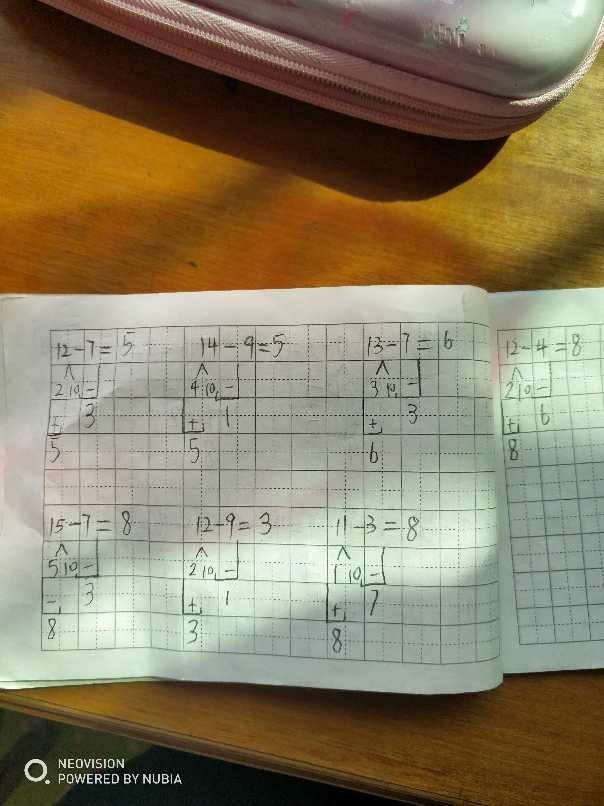 12-7=5 14-9=5 13-7=6 12-4=8
2 10 - 4 10 - 3 10 - 2 10 -
+ 3 + 1 + 3 + 6
5 5 6 8
15-7=8 12-9=3 11-3=8
5 10 - 2 10 - 1 10 -
- 3 + 1 + 7
8 3 8
NEOVISION
POWERED BY NUBIA